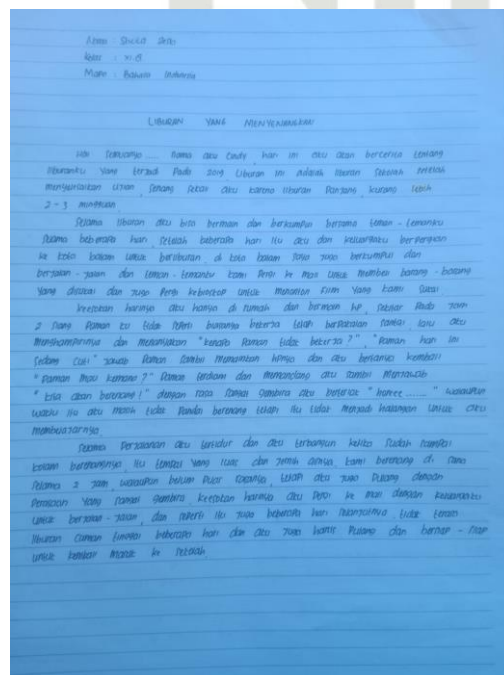 Nama : 
Kelas : XI.
Mapel : Bahasa Indonesia
LIBURAN YANG MENYENANGKAN
Hai semuanya .... nama aku Cindy, hari ini aku akan bercerita tentang
liburanku yang terjadi pada 2019 liburan ini adalah liburan sekolah setelah
menyelesaikan ujian, senang sekali aku karena liburan panjang, kurang lebih
2-3 mingguan
Selama liburan aku bisa bermain dan berkumpul bersama teman-temanku
selama beberapa hari, setelah beberapa hari itu aku dan keluargaku berpergian
ke kota batam untuk berliburan, di kota batam saya juga berkumpul dan
berjalan-jalan dan teman-temanku kami pergi ke mall untuk membeli barang-barang
yang disukai dan juga pergi kebioskop untuk menonton film yang kami sukai
keesokan harinya aku hanya di rumah dan bermain HP, sekitar pada jam
2 siang paman ku tidak seperti biasanya bekerja telah berpakaian santai lalu aku
menghampirinya dan menanyakan "kenapa paman tidak bekerja?", "paman hari ini
sedang cuti" jawab paman sambil memainkan hpnya dan aku bertanya kembali
"paman mau kemana?" paman terdiam dan memandang aku sambil menjawab
"kita akan berenang!" dengan rasa sangat gembira aku berteriak "horee ......" walaupun
waktu itu aku masih tidak pandai berenang tetapi itu tidak menjadi halangan untuk aku
membelajarnya
Selama perjalanan aku tertidur dan aku terbangun ketika sudah sampai
kolam berenangnya, itu tempat yang luas dan jernih airnya, kami berenang di sana
selama 2 jam, walaupun belum puas rasanya, tetapi aku juga pulang dengan
perasaan yang sangat gembira, keesokan harinya aku pergi ke mall dengan keluargaku
untuk berjalan-jalan, dan seperti itu juga beberapa hari selanjutnya, tidak terasa
liburan cuman tinggal beberapa hari dan aku juga harus pulang dan bersiap-siap
untuk kembali masuk ke sekolah